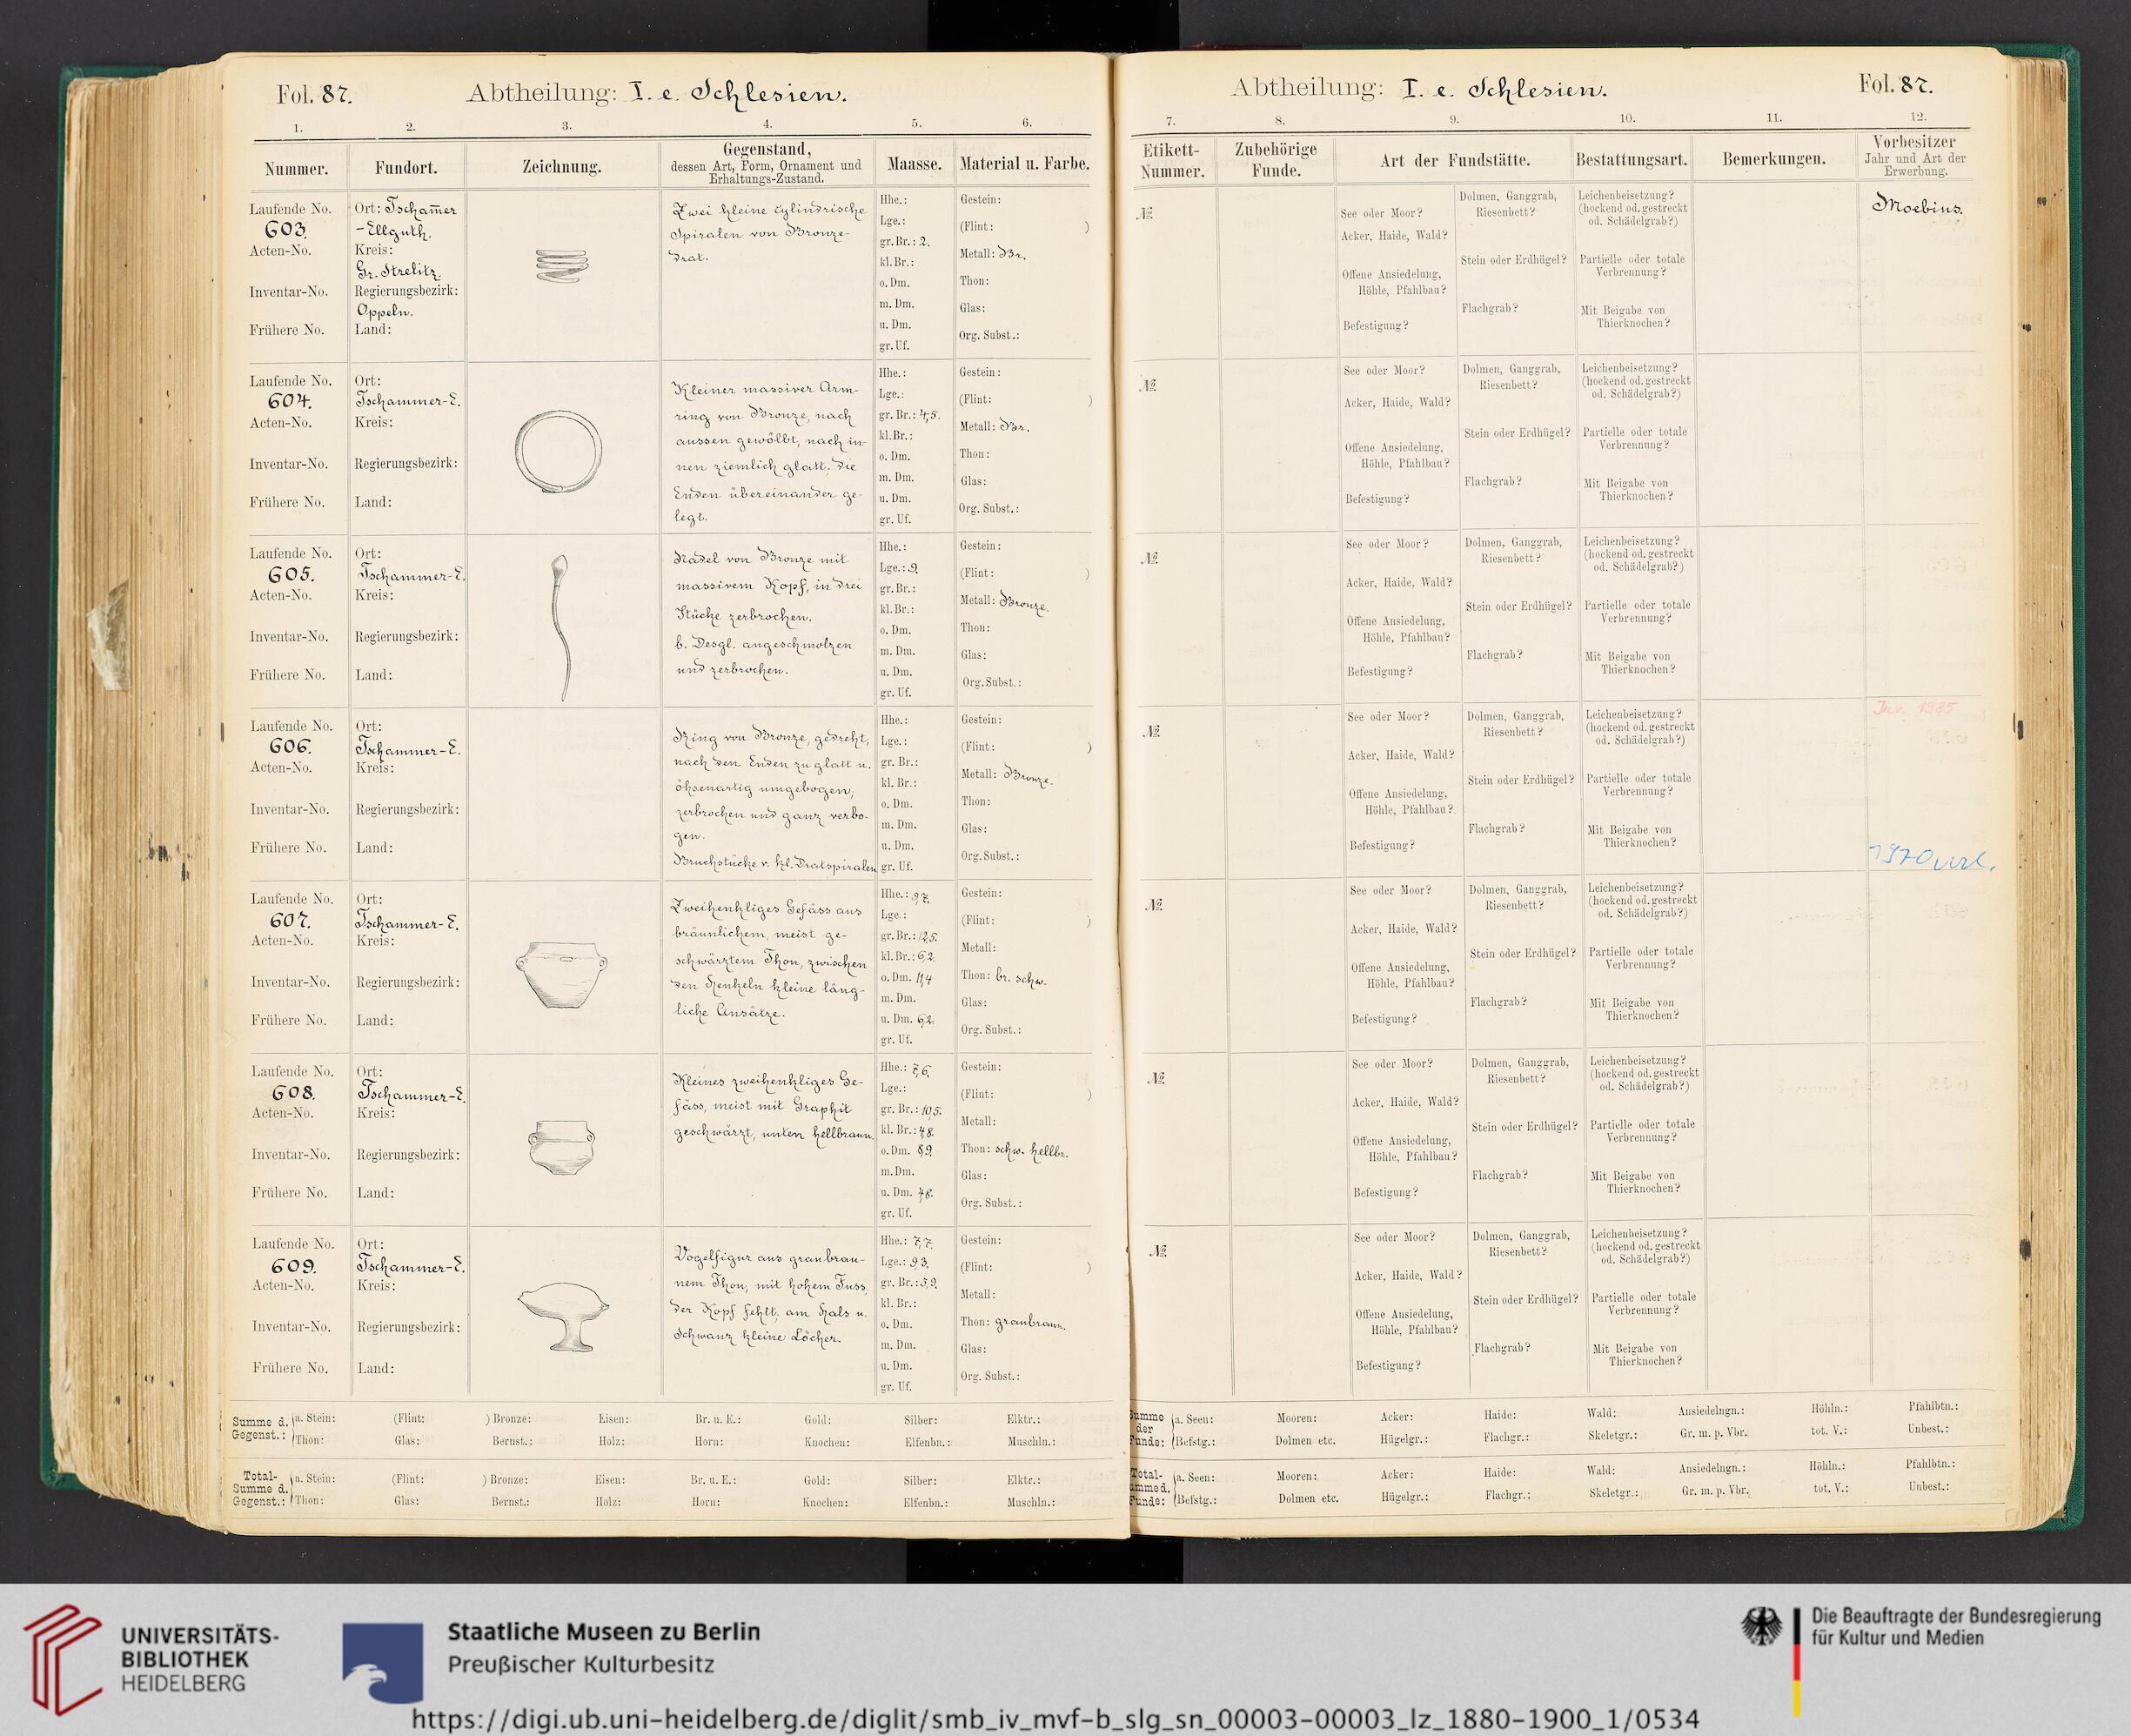 Fol. 87.
Abtheilung: I. e. Schlesien.
1. 2. 3. 4. 5. 6.
Nummer. Fundort. Zeichnung. Gegenstand, dessen Art, Form, Ornament und Erhaltungs-Zustand. Maasse. Material u. Farbe.
Laufende No. 603.
Acten-No.
Inventar-No.
Frühere No.
Ort: Tscham̅er
-Ellguth.
Kreis:
Gr. Strelitz
Regierungsbezirk:
Oppeln.
Land:
Zwei kleine cylindrische
Spiralen von Bronze-
drat.
Hhe.:
Lge.:
gr. Br.: 2.
kl. Br.:
o. Dm.
m. Dm.
u. Dm.
gr. Uf.
Gestein:
(Flint: )
Metall: Br.
Thon:
Glas:
Org. Subst.:
Laufende No. 604.
Acten-No.
Inventar-No.
Frühere No.
Ort:
Tschammer-E.
Kreis:
Regierungsbezirk:
Land:
Kleiner massiver Arm-
ring von Bronze, nach
aussen gewölbt, nach in-
nen ziemlich glatt; die
Enden übereinander ge-
legt.
Hhe.:
Lge.:
gr. Br.: 4,5.
kl. Br.:
o. Dm.
m. Dm.
u. Dm.
gr. Uf.
Gestein:
(Flint: )
Metall: Br.
Thon:
Glas:
Org. Subst.:
Laufende No. 605.
Acten-No.
Inventar-No.
Frühere No.
Ort:
Tschammer-E.
Kreis:
Regierungsbezirk:
Land:
Nadel von Bronze mit
massivem Kopf, in drei
Stücke zerbrochen.
b. Desgl. angeschmolzen
und zerbrochen.
Hhe.:
Lge.: 9.
gr. Br.:
kl. Br.:
o. Dm.
m. Dm.
u. Dm.
gr. Uf.
Gestein:
(Flint: )
Metall: Bronze.
Thon:
Glas:
Org. Subst.:
Laufende No. 606.
Acten-No.
Inventar-No.
Frühere No.
Ort:
Tschammer-E.
Kreis:
Regierungsbezirk:
Land:
Ring von Bronze, gedreht,
nach den Enden zu glatt u.
öhsenartig umgebogen;
zerbrochen und ganz verbo-
gen.
Bruchstücke v. kl. Dratspiralen
Hhe.:
Lge.:
gr. Br.:
kl. Br.:
o. Dm.
m. Dm.
u. Dm.
gr. Uf.
Gestein:
(Flint: )
Metall: Bronze.
Thon:
Glas:
Org. Subst.:
Laufende No. 607.
Acten-No.
Inventar-No.
Frühere No.
Ort:
Tschammer-E.
Kreis:
Regierungsbezirk:
Land:
Zweihenkliges Gefäss aus
bräunlichem, meist ge-
schwärztem Thon, zwischen
den Henkeln kleine läng-
liche Ansätze.
Hhe.: 9,7.
Lge.:
gr. Br.: 12,5.
kl. Br.: 6,2.
o. Dm. 11,4
m. Dm.
u. Dm. 6,2.
gr. Uf.
Gestein:
(Flint: )
Metall:
Thon: br. schw.
Glas:
Org. Subst.:
Laufende No. 608.
Acten-No.
Inventar-No.
Frühere No.
Ort:
Tschammer-E.
Kreis:
Regierungsbezirk:
Land:
Kleines zweihenkliges Ge-
fäss, meist mit Graphit
geschwärzt, unten hellbraun.
Hhe.: 7,6.
Lge.:
gr. Br.: 10,5.
kl. Br.: 4,8.
o. Dm. 8,9.
m. Dm.
u. Dm. 4,8.
gr. Uf.
Gestein:
(Flint: )
Metall:
Thon: schw. hellbr.
Glas:
Org. Subst.:
Laufende No. 609.
Acten-No.
Inventar-No.
Frühere No.
Ort:
Tschammer-E.
Kreis:
Regierungsbezirk:
Land:
Vogelfigur aus graubrau-
nem Thon, mit hohem Fuss,
der Kopf fehlt; am Hals u.
Schwanz kleine Löcher.
Hhe.: 7,7.
Lge.: 9,3.
gr. Br.: 5,9.
kl. Br.:
o. Dm.
m. Dm.
u. Dm.
gr. Uf.
Gestein:
(Flint: )
Metall:
Thon: graubraun.
Glas:
Org. Subst.:
Summe d. Gegenst.: a. Stein: (Flint: ) Bronze: Eisen: Br. u. E.: Gold: Silber: Elktr.:
Thon: Glas: Bernst.: Holz: Horn: Knochen: Elfenbn.: Muschln.:
Total-Summe d. Gegenst.: a. Stein: (Flint: ) Bronze: Eisen: Br. u. E.: Gold: Silber: Elktr.:
Thon: Glas: Bernst.: Holz: Horn: Knochen: Elfenbn.: Muschln.:
Abtheilung: I. e. Schlesien.
Fol. 87.
7. 8. 9. 10. 11. 12.
Etikett-Nummer. Zubehörige Funde. Art der Fundstätte. Bestattungsart. Bemerkungen. Vorbesitzer Jahr und Art der Erwerbung.
№
See oder Moor?
Acker, Haide, Wald?
Offene Ansiedelung,
Höhle, Pfahlbau?
Befestigung?
Dolmen, Ganggrab,
Riesenbett?
Stein oder Erdhügel?
Flachgrab?
Leichenbeisetzung?
(hockend od. gestreckt
od. Schädelgrab?)
Partielle oder totale
Verbrennung?
Mit Beigabe von
Thierknochen?
Moebius.
№
See oder Moor?
Acker, Haide, Wald?
Offene Ansiedelung,
Höhle, Pfahlbau?
Befestigung?
Dolmen, Ganggrab,
Riesenbett?
Stein oder Erdhügel?
Flachgrab?
Leichenbeisetzung?
(hockend od. gestreckt
od. Schädelgrab?)
Partielle oder totale
Verbrennung?
Mit Beigabe von
Thierknochen?
№
See oder Moor?
Acker, Haide, Wald?
Offene Ansiedelung,
Höhle, Pfahlbau?
Befestigung?
Dolmen, Ganggrab,
Riesenbett?
Stein oder Erdhügel?
Flachgrab?
Leichenbeisetzung?
(hockend od. gestreckt
od. Schädelgrab?)
Partielle oder totale
Verbrennung?
Mit Beigabe von
Thierknochen?
№
See oder Moor?
Acker, Haide, Wald?
Offene Ansiedelung,
Höhle, Pfahlbau?
Befestigung?
Dolmen, Ganggrab,
Riesenbett?
Stein oder Erdhügel?
Flachgrab?
Leichenbeisetzung?
(hockend od. gestreckt
od. Schädelgrab?)
Partielle oder totale
Verbrennung?
Mit Beigabe von
Thierknochen?
Inv. 1985
1970 verl.
№
See oder Moor?
Acker, Haide, Wald?
Offene Ansiedelung,
Höhle, Pfahlbau?
Befestigung?
Dolmen, Ganggrab,
Riesenbett?
Stein oder Erdhügel?
Flachgrab?
Leichenbeisetzung?
(hockend od. gestreckt
od. Schädelgrab?)
Partielle oder totale
Verbrennung?
Mit Beigabe von
Thierknochen?
№
See oder Moor?
Acker, Haide, Wald?
Offene Ansiedelung,
Höhle, Pfahlbau?
Befestigung?
Dolmen, Ganggrab,
Riesenbett?
Stein oder Erdhügel?
Flachgrab?
Leichenbeisetzung?
(hockend od. gestreckt
od. Schädelgrab?)
Partielle oder totale
Verbrennung?
Mit Beigabe von
Thierknochen?
№
See oder Moor?
Acker, Haide, Wald?
Offene Ansiedelung,
Höhle, Pfahlbau?
Befestigung?
Dolmen, Ganggrab,
Riesenbett?
Stein oder Erdhügel?
Flachgrab?
Leichenbeisetzung?
(hockend od. gestreckt
od. Schädelgrab?)
Partielle oder totale
Verbrennung?
Mit Beigabe von
Thierknochen?
umme der unde: a. Seen: Mooren: Acker: Haide: Wald: Ansiedelngn.: Höhln.: Pfahlbtn.:
Befstg.: Dolmen etc. Hügelgr.: Flachgr.: Skeletgr.: Gr. m. p. Vbr. tot. V.: Unbest.:
Total- mme d. unde: a. Seen: Mooren: Acker: Haide: Wald: Ansiedelngn.: Höhln.: Pfahlbtn.:
Befstg.: Dolmen etc. Hügelgr.: Flachgr.: Skeletgr.: Gr. m. p. Vbr. tot. V.: Unbest.:
UNIVERSITÄTS-
BIBLIOTHEK
HEIDELBERG
Staatliche Museen zu Berlin
Preußischer Kulturbesitz
Die Beauftragte der Bundesregierung
für Kultur und Medien
https://digi.ub.uni-heidelberg.de/diglit/smb_iv_mvf-b_slg_sn_00003-00003_lz_1880-1900_1/0534